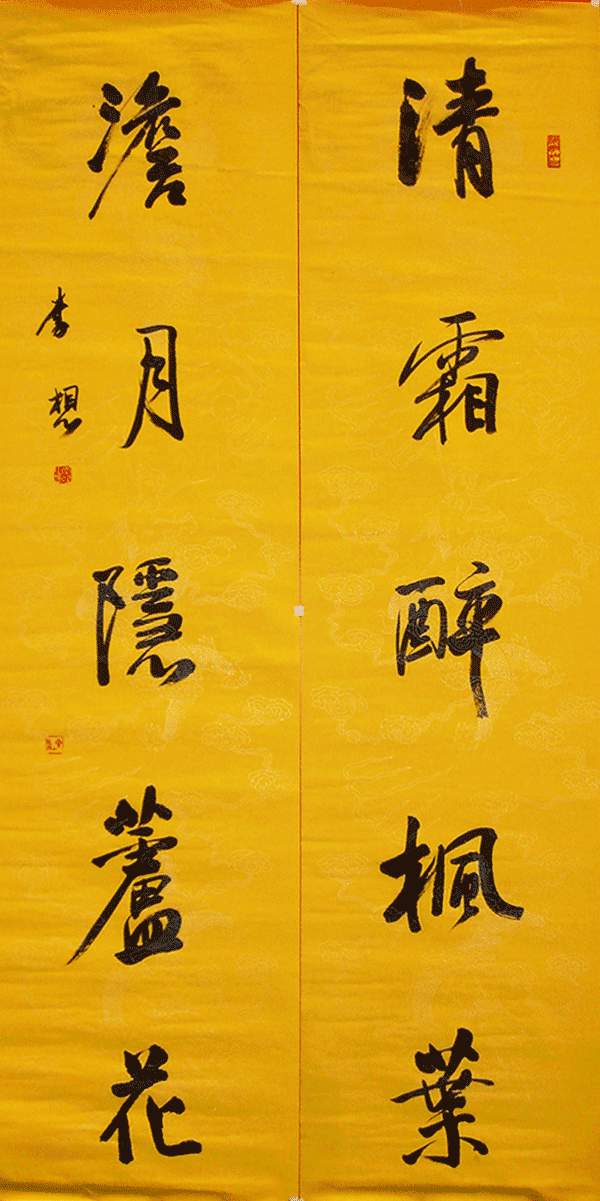 清霜醉楓葉
澹月隱蘆花
李想